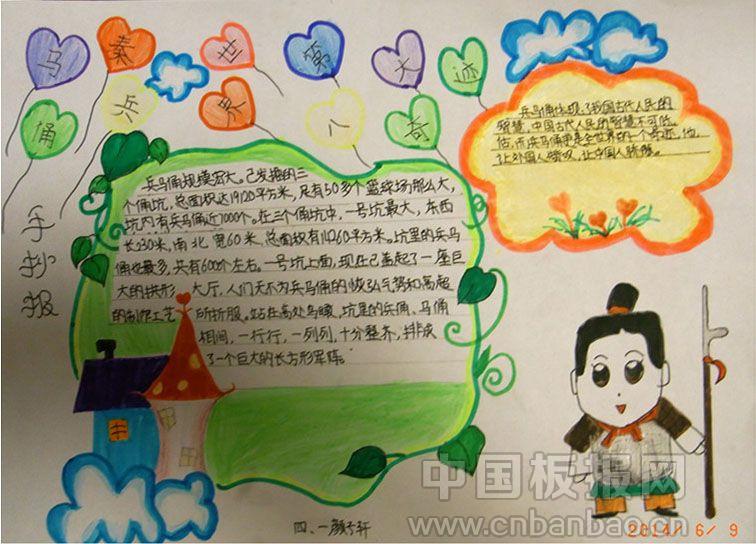 马 秦 世 第 大 迹
俑 兵 界 八 奇
手抄报
兵马俑体现了我国古代人民的
智慧,中国古代人民的智慧不可低
估,而兵马俑更是全世界的一个奇迹,他
让外国人赞叹,让中国人骄傲。
兵马俑规模宏大。已发掘的三
个俑坑,总面积达19120平方米,足有50多个篮球场那么大,
坑内有兵马俑近1000个。在三个俑坑中,一号坑最大,东西
长230米,南北宽60米,总面积有14260平方米。坑里的兵马
俑也最多,共有6000个左右。一号坑上面,现在已盖起了一座巨
大的拱形 大厅,人们无不为兵马俑的恢弘气势和高超
的制作工艺 所折服。站在高处鸟瞰,坑里的兵俑、马俑
相间,一行行,一列列,十分整齐,排成
了一个巨大的长方形军阵。
四、一
中国板报网
www.cnbanbao.cn
2014/ 6/ 9